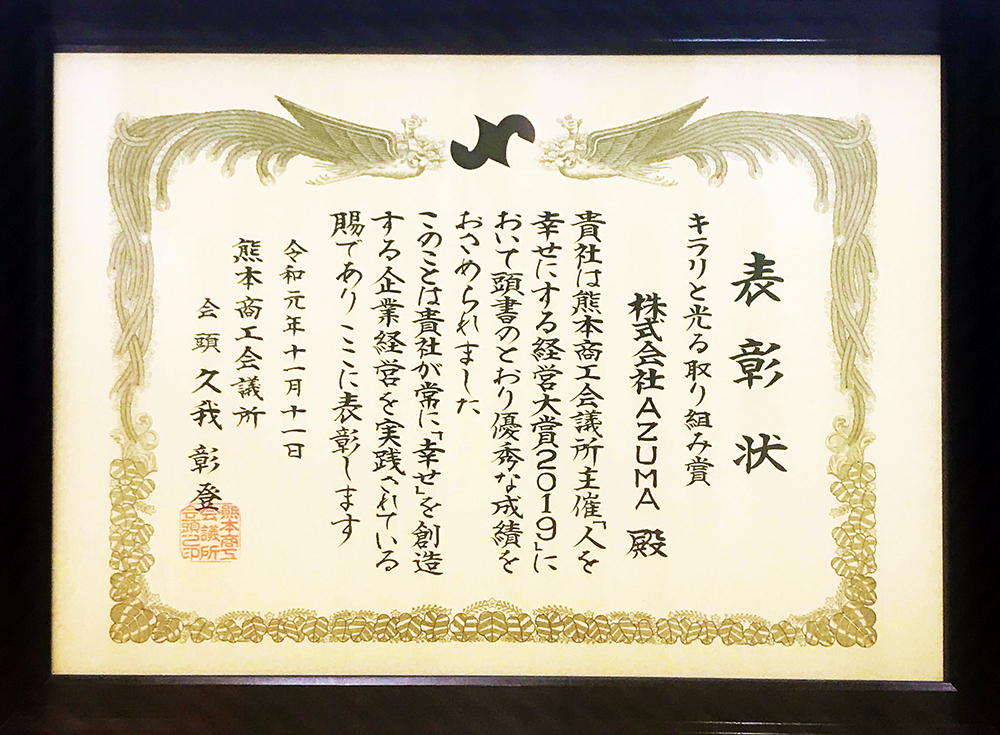 表彰状
キラリと光る取り組み賞
株式会社AZUMA 殿
貴社は熊本商工会議所主催「人を
幸せにする経営大賞2019」に
おいて頭書のとおり優秀な成績を
おさめられました
このことは貴社が常に「幸せ」を創造
する企業経営を実践されている
賜でありここに表彰します
令和元年十一月十一日
熊本商工会議所
会頭 久我彰登
熊本商工
会議所
会頭之印